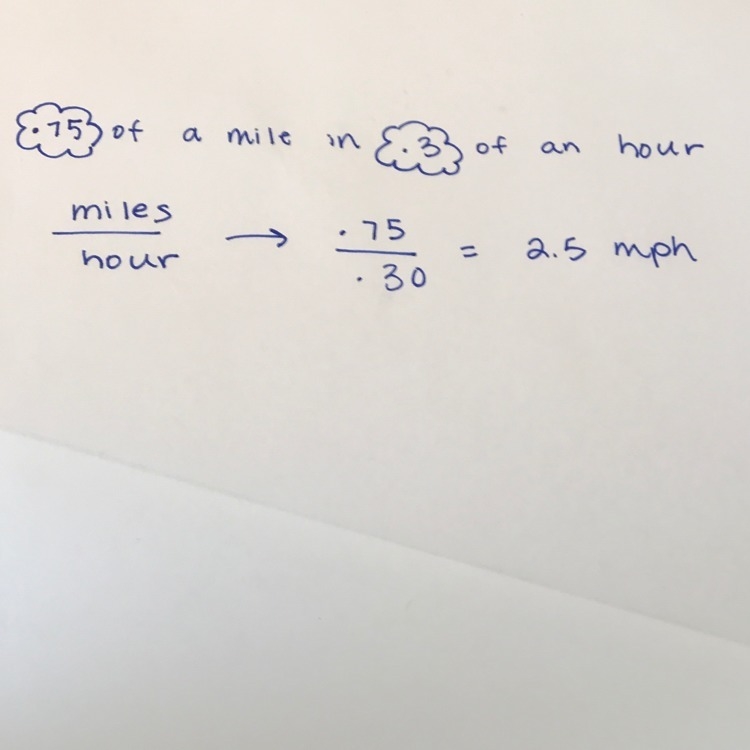 .75 of a mile in .3 of an hour
miles
hour
→
.75
.30
= 2.5 mph